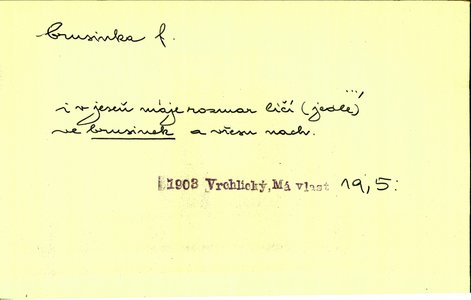 brusinka f.
i v jeseň máje rozmar líčí (jedlé)
ve brusinek a vřesu nach.
1903 Vrchlický, Má vlast 19,5.